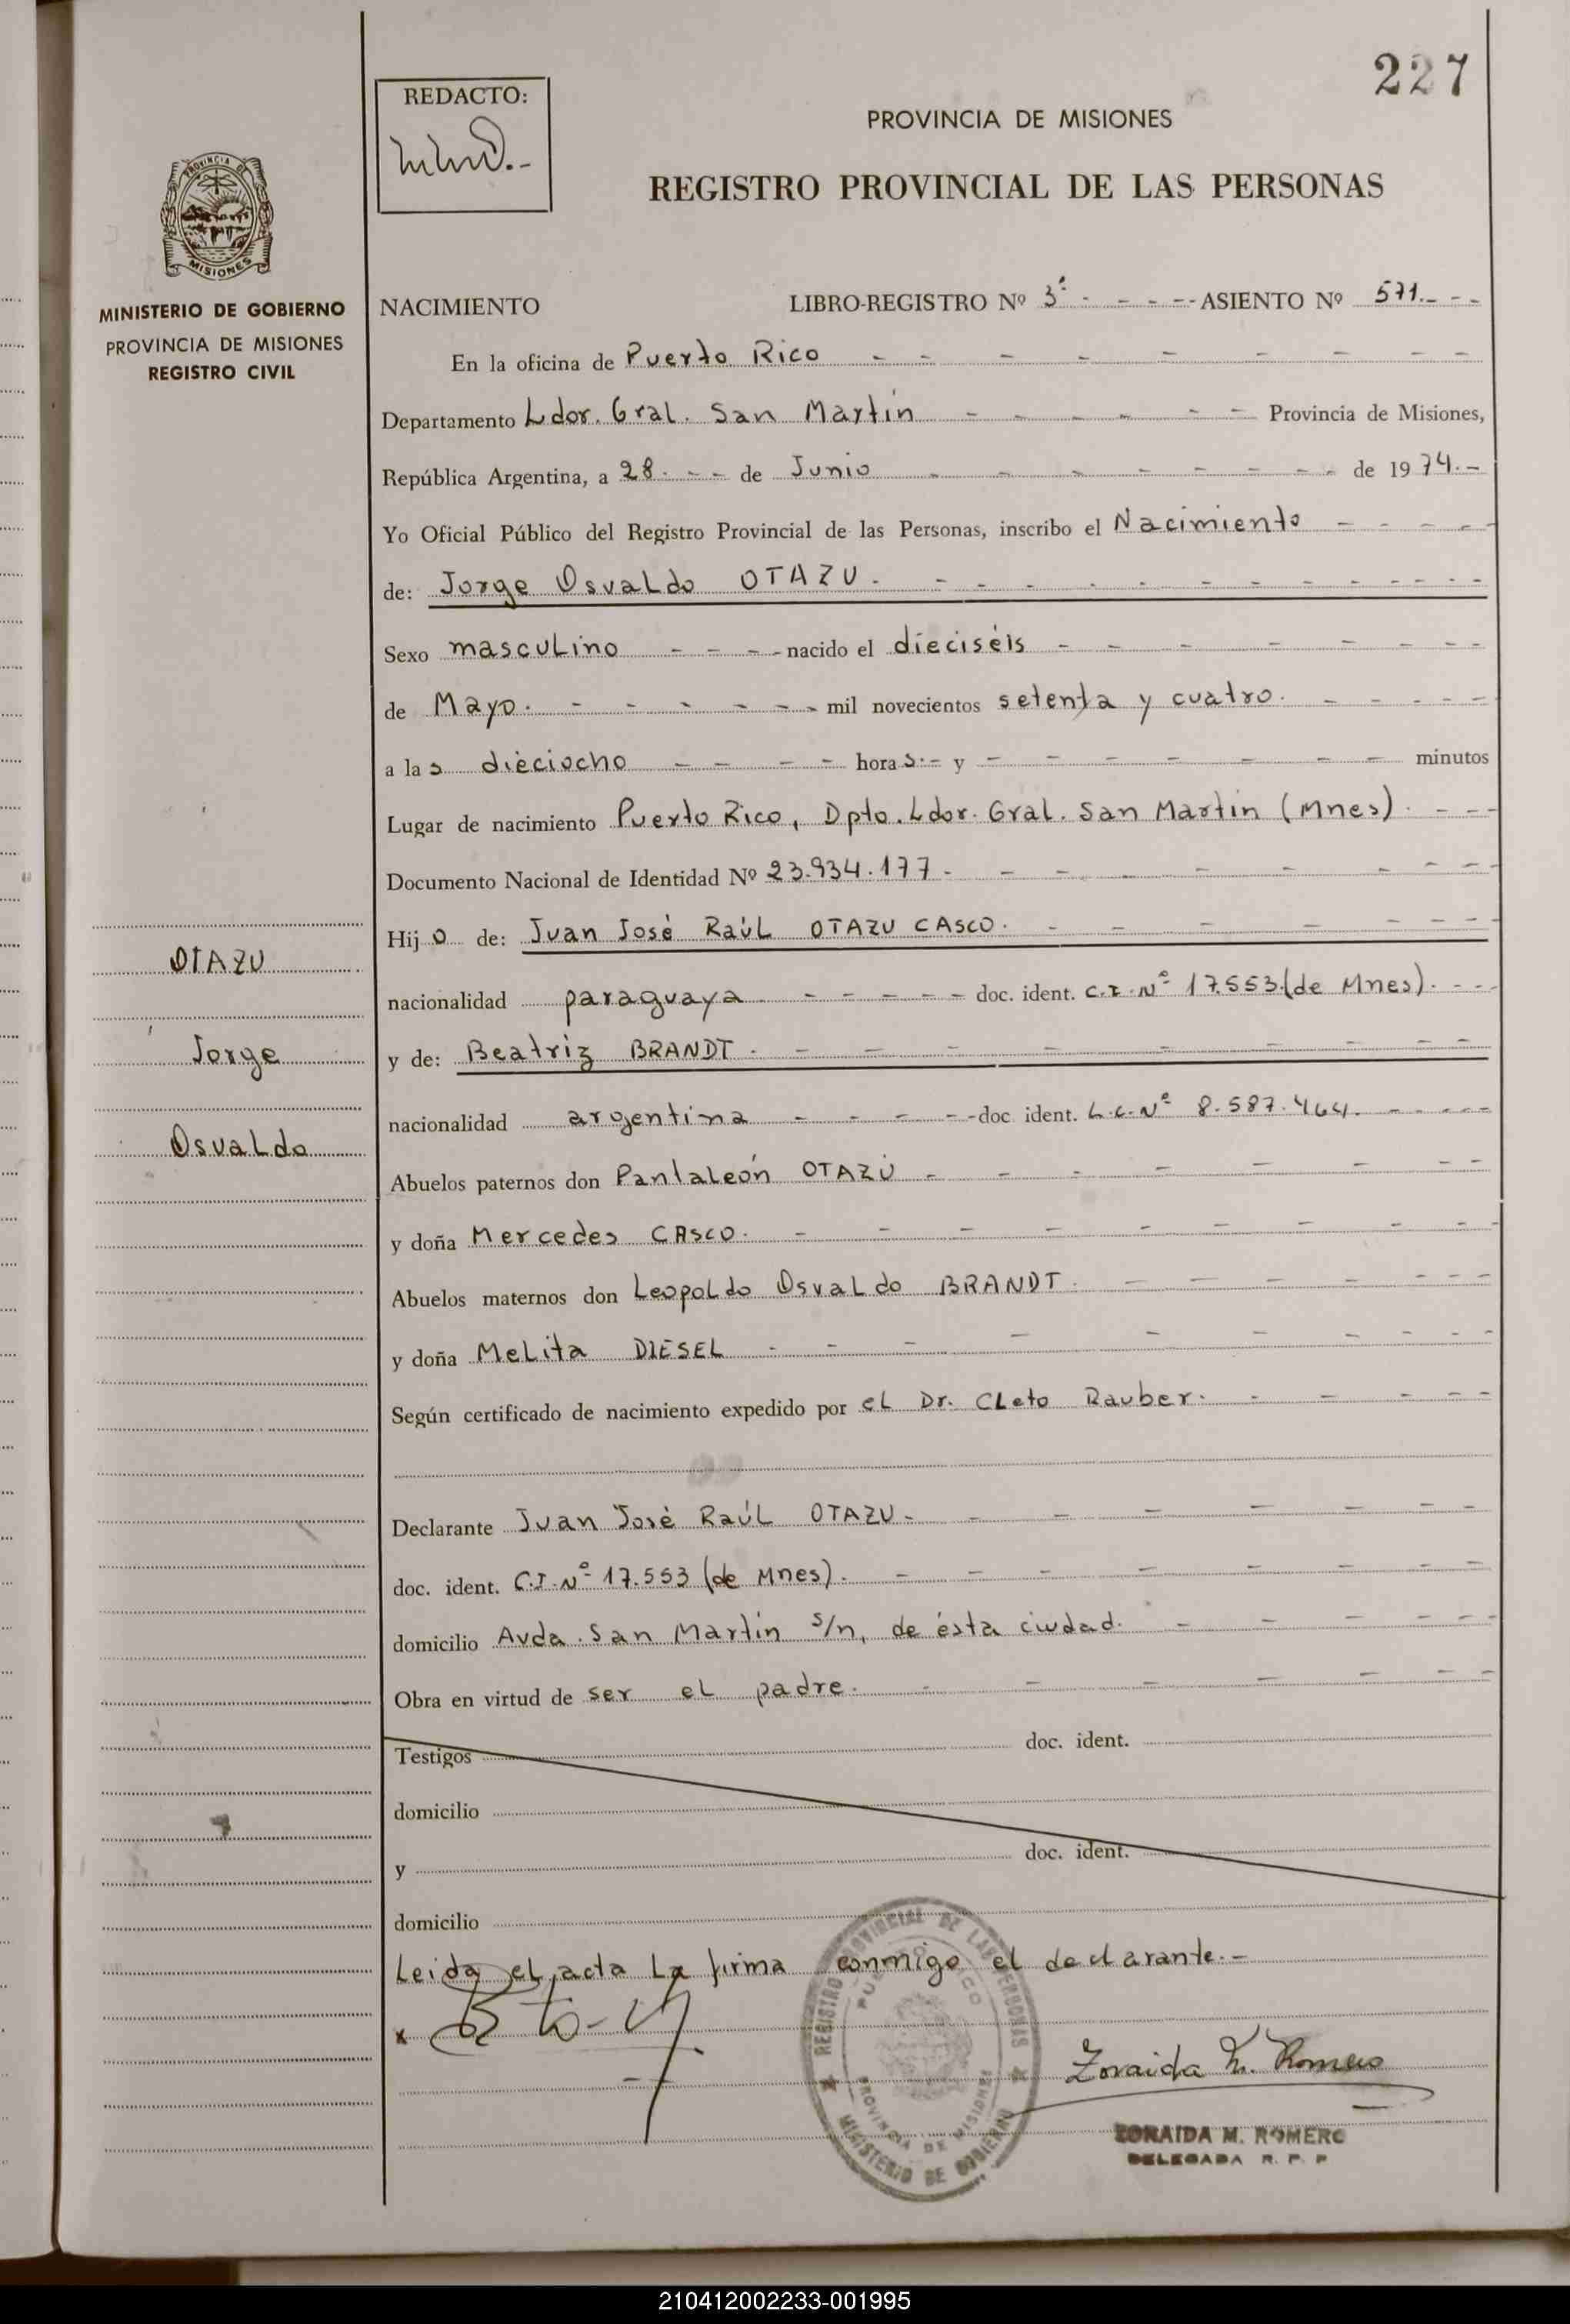 227
REDACTO:
PROVINCIA DE MISIONES
REGISTRO PROVINCIAL DE LAS PERSONAS
PROVINCIA DE
MISIONES
MINISTERIO DE GOBIERNO
PROVINCIA DE MISIONES
REGISTRO CIVIL
NACIMIENTO LIBRO-REGISTRO Nº 3º - - - - ASIENTO Nº 571.- - -
En la oficina de Puerto Rico - - - - - - - - -
Departamento Ldor. Gral. San Martín - - - - - Provincia de Misiones,
República Argentina, a 28. - - de Junio - - - - - - - - de 1974.-
Yo Oficial Público del Registro Provincial de las Personas, inscribo el Nacimiento - - - - -
de: Jorge Osvaldo OTAZU. - - - - - - - - - - - -
Sexo masculino - - - - nacido el dieciséis - - - - - - - -
de Mayo. - - - - - - mil novecientos setenta y cuatro. - - - - -
a las dieciocho - - - - - horas.- y - - - - - - - - minutos
Lugar de nacimiento Puerto Rico, Dpto. Ldor. Gral. San Martín (Mnes). - - -
Documento Nacional de Identidad Nº 23.934.177. - - - - - - - - -
Hijo de: Juan José Raúl OTAZU CASCO. - - - - - - - -
nacionalidad paraguaya - - - - - - doc. ident. C.I. Nº 17.553 (de Mnes). - - -
y de: Beatriz BRANDT. - - - - - - - - - -
nacionalidad argentina - - - - - doc. ident. L.C. Nº 8.587.464. - - - - -
Abuelos paternos don Pantaleón OTAZÚ - - - - - - - -
y doña Mercedes CASCO. - - - - - - - - - -
Abuelos maternos don Leopoldo Osvaldo BRANDT. - - - - - - -
y doña Melita DIESEL - - - - - - - - - -
Según certificado de nacimiento expedido por el Dr. Cleto Rauber. - - - - -
Declarante Juan José Raúl OTAZU - - - - - - - -
doc. ident. C.I. Nº 17.553 (de Mnes). - - - - - - - -
domicilio Avda. San Martín s/n, de ésta ciudad. - - - - - -
Obra en virtud de ser el padre. - - - - - - -
Testigos doc. ident.
domicilio
y doc. ident.
domicilio
Leida el acta la firma conmigo el declarante.-
OTAZU
Jorge
Osvaldo
REGISTRO PROVINCIAL DE LAS PERSONAS
PUERTO RICO
PROVINCIA DE MISIONES
MINISTERIO DE GOBIERNO
Zoraida M. Romero
ZORAIDA M. ROMERO
DELEGADA R. P. P
210412002233-001995